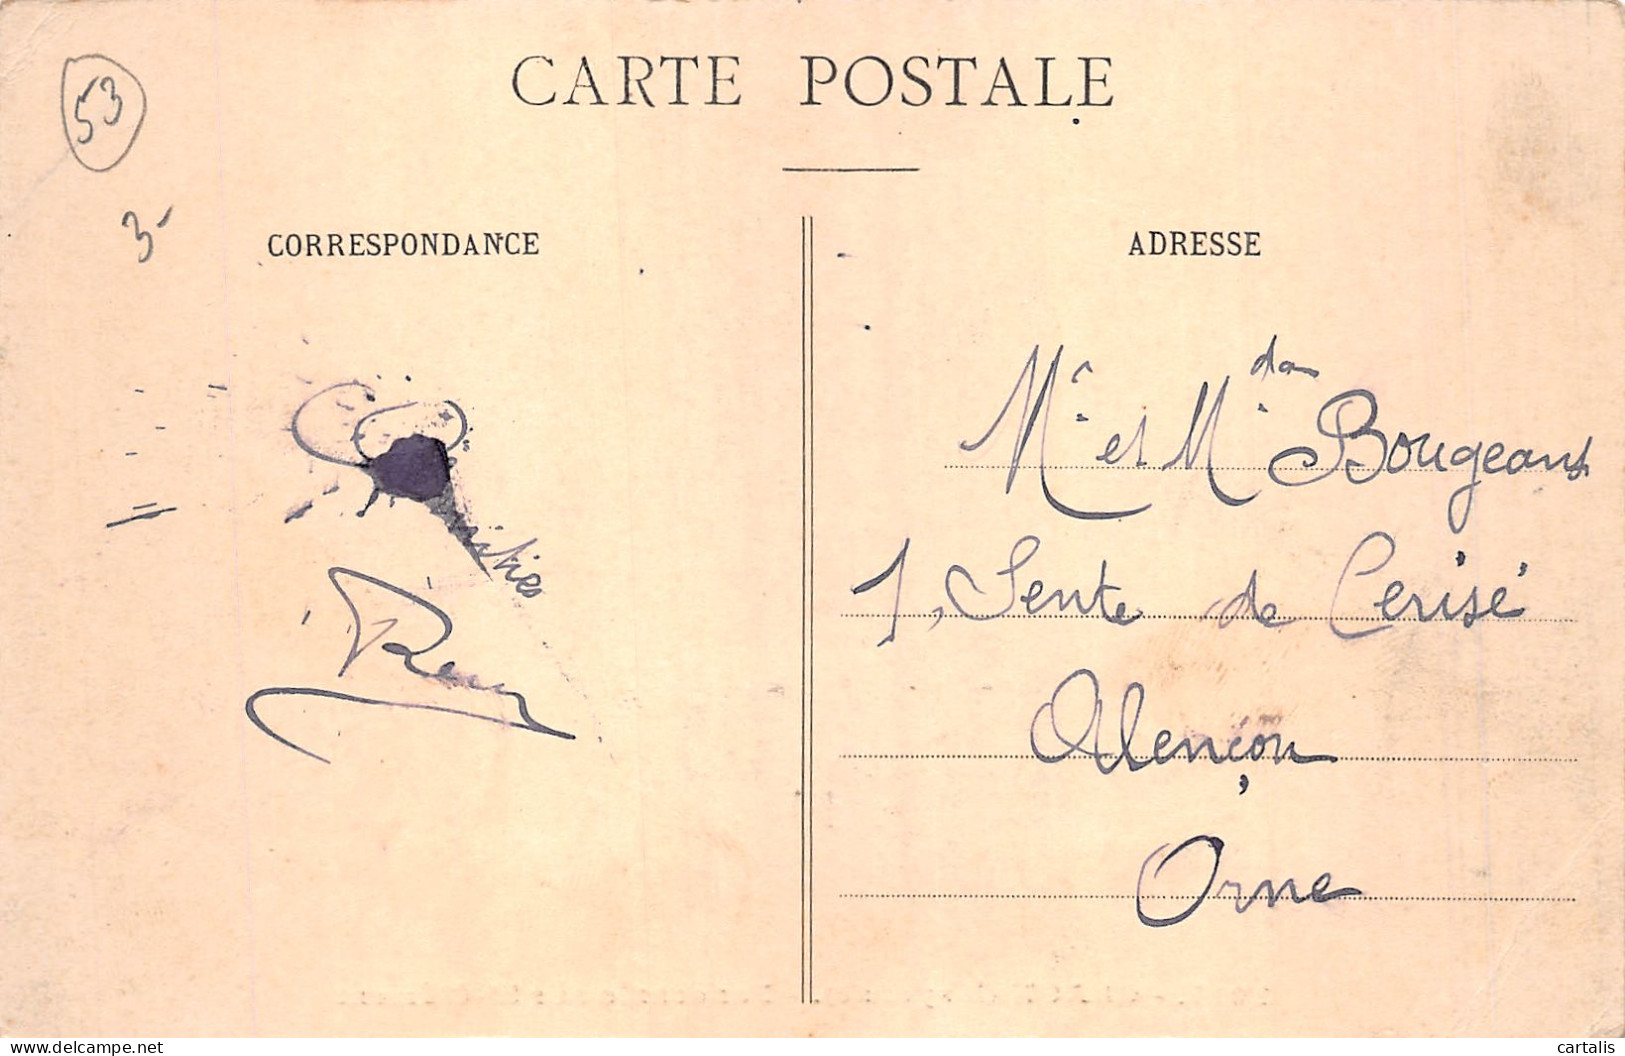 CARTE POSTALE
53
3-
CORRESPONDANCE
ADRESSE
Mr et Mdam Bougeant
1, Sente de Cerisé
Alençon
Orne
delcampe.net
cartalis